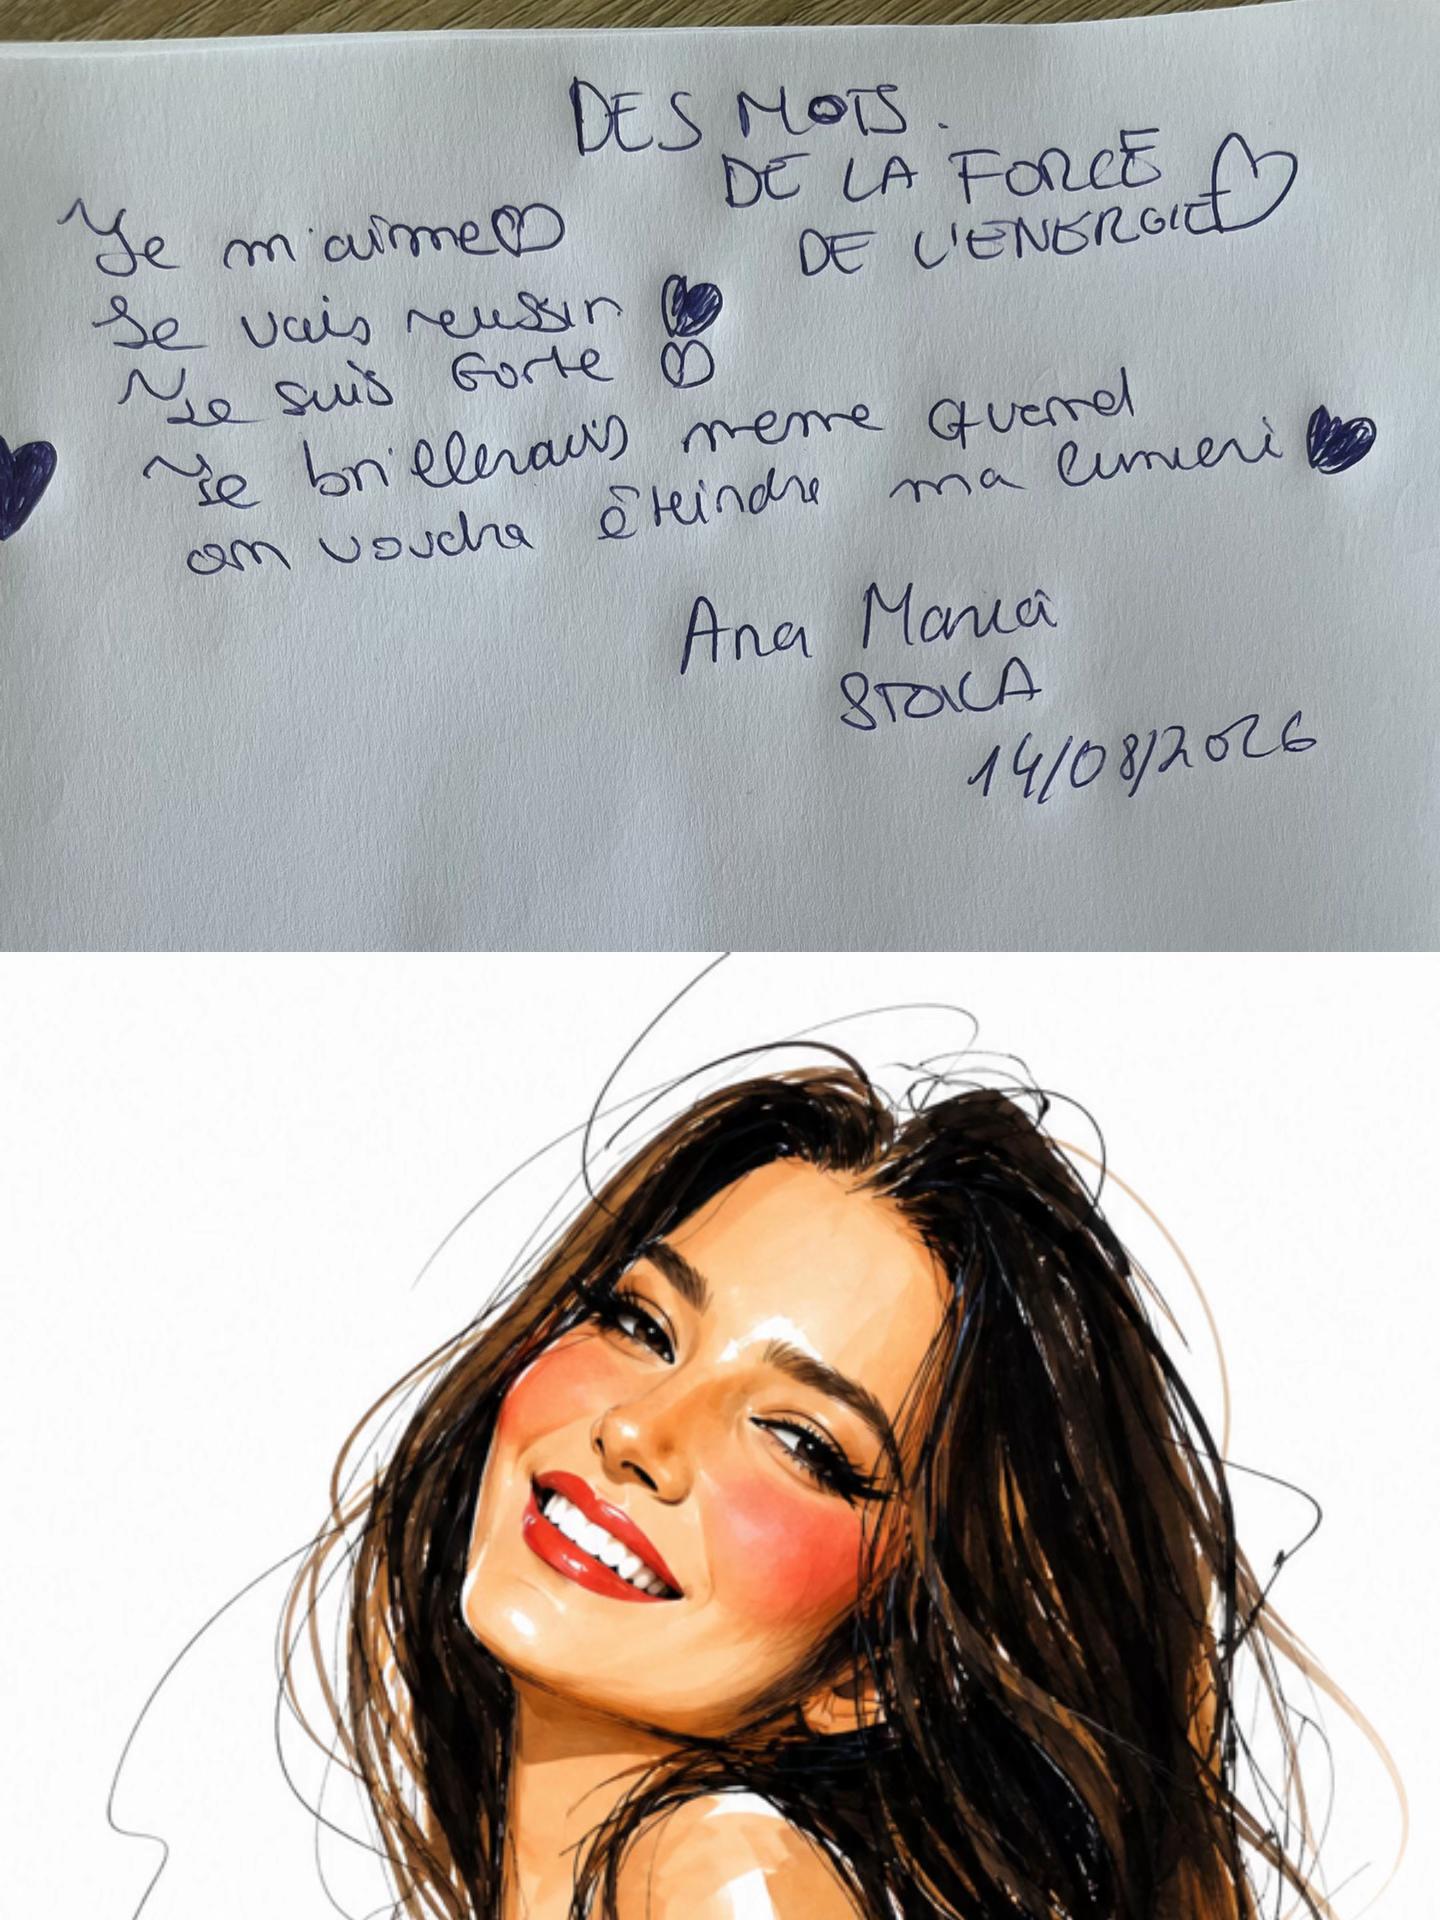 DES MOTS.
DE LA FORCE
DE L'ENERGIE
Je m'aime
Je vais reussir
Je suis forte
Je brillerais meme quand
on voudra éteindre ma lumieri
Ana Maria
STOICA
14/08/2026